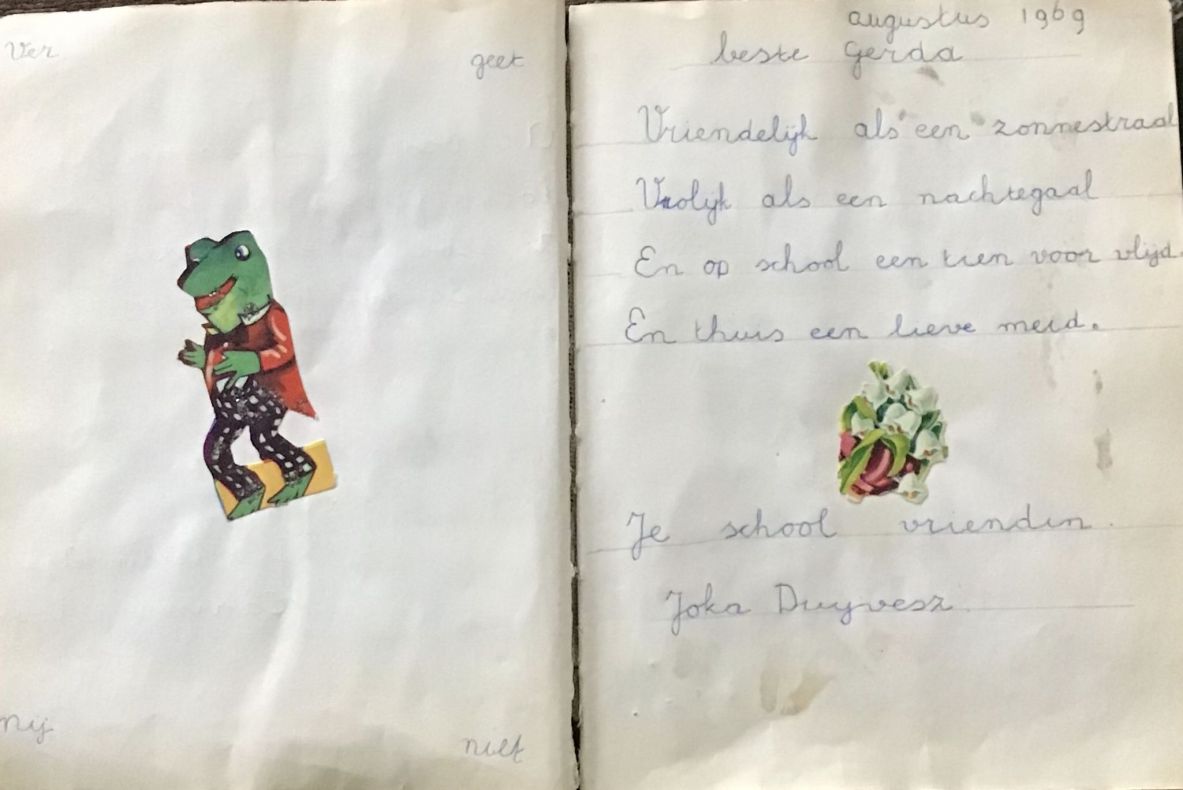 Ver
geet
mij
niet
augustus 1969
beste Gerda
Vriendelijk als een zonnestraal
Vrolijk als een nachtegaal
En op school een tien voor vlijd.
En thuis een lieve meid.
Je school vriendin.
Joka Duyvesz.